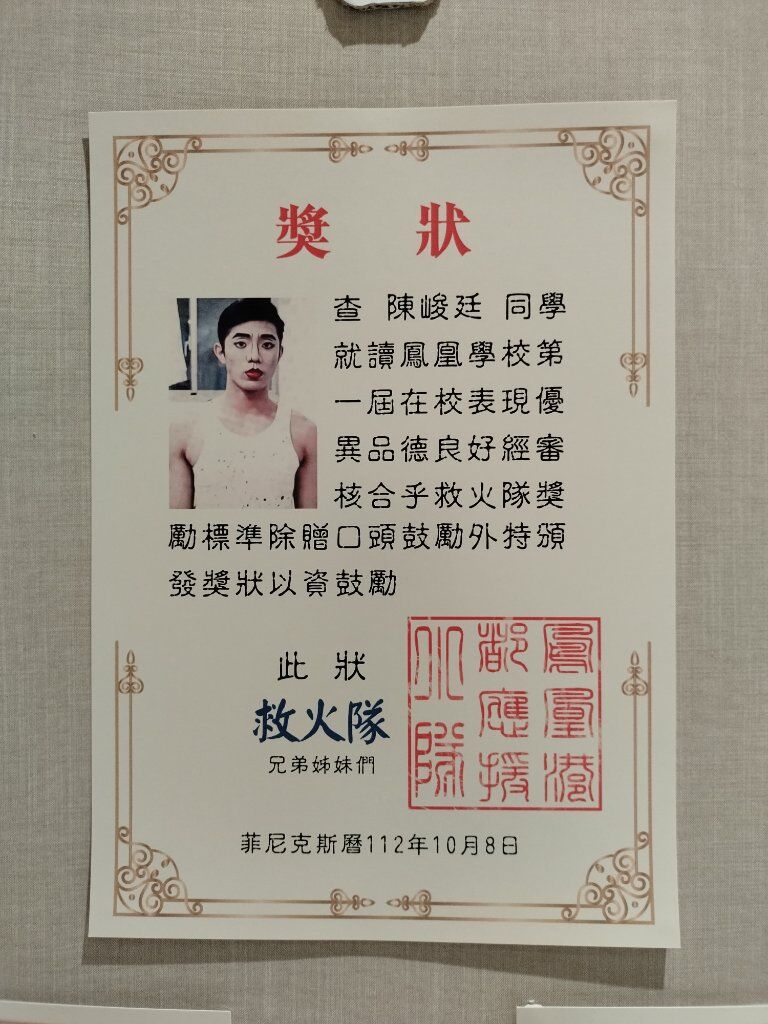 獎狀
查 陳峻廷 同學
就讀鳳凰學校第
一屆在校表現優
異品德良好經審
核合乎救火隊獎
勵標準除贈口頭鼓勵外特頒
發獎狀以資鼓勵
此狀
救火隊
兄弟姊妹們
鳳凰港
都應援
火隊
菲尼克斯曆112年10月8日